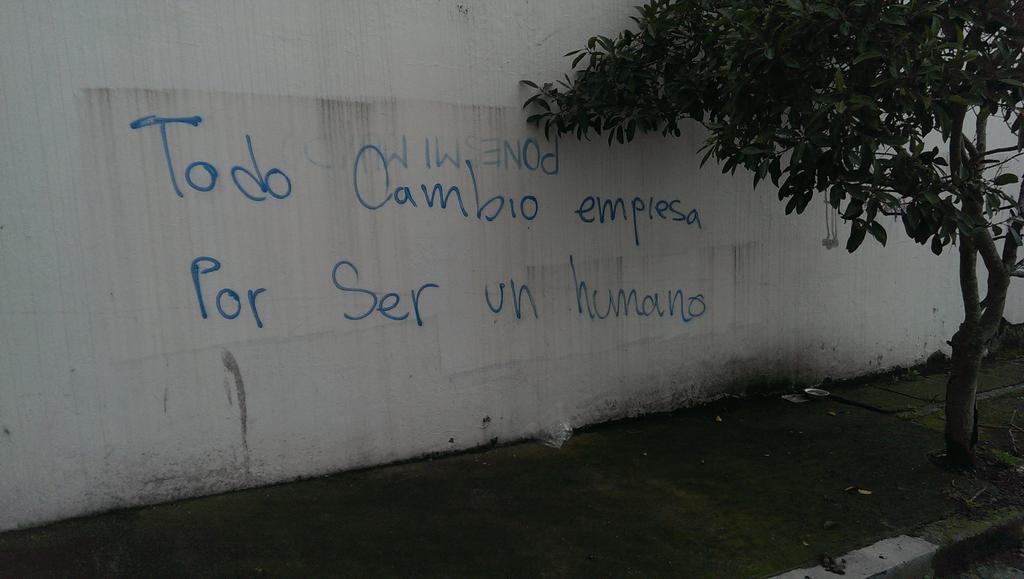 Todo Cambio empiesa
Por Ser un humano
PONES MI